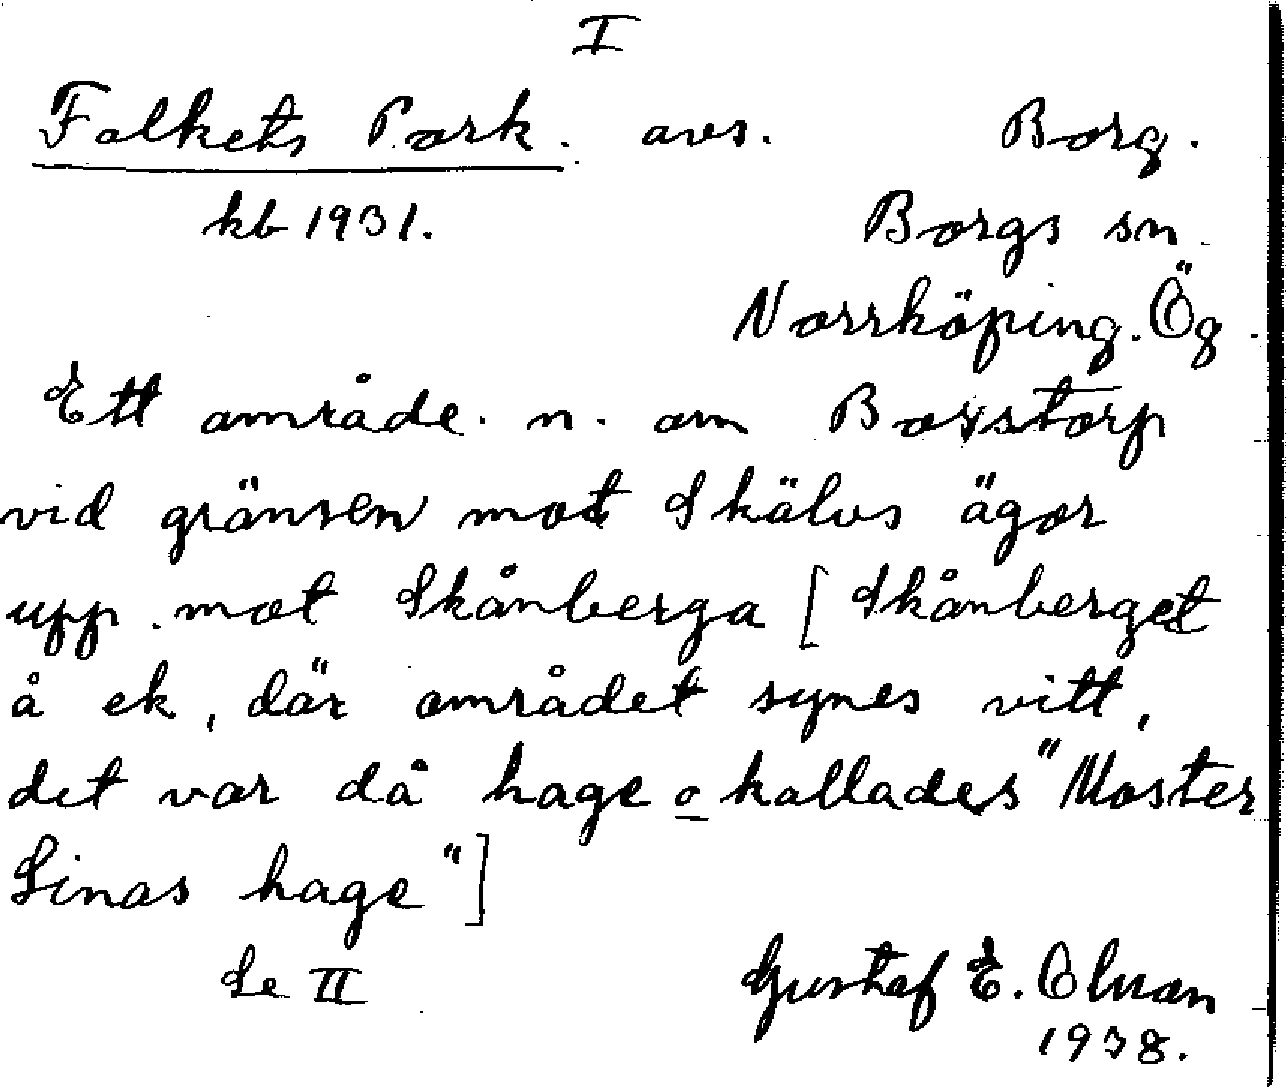 I
Folkets Park. avs. Borg.
kb 1931. Borgs sn.
Norrköping. Ög.
Ett område. n. om Boxstorp
vid gränsen mot Skälvs ägor
upp. mot Skånberga [Skånberget
å ek, där området synes vitt,
det var då hage o kallades "Moster
Sinas hage"]
Se II Gustaf E. Olman
1938.